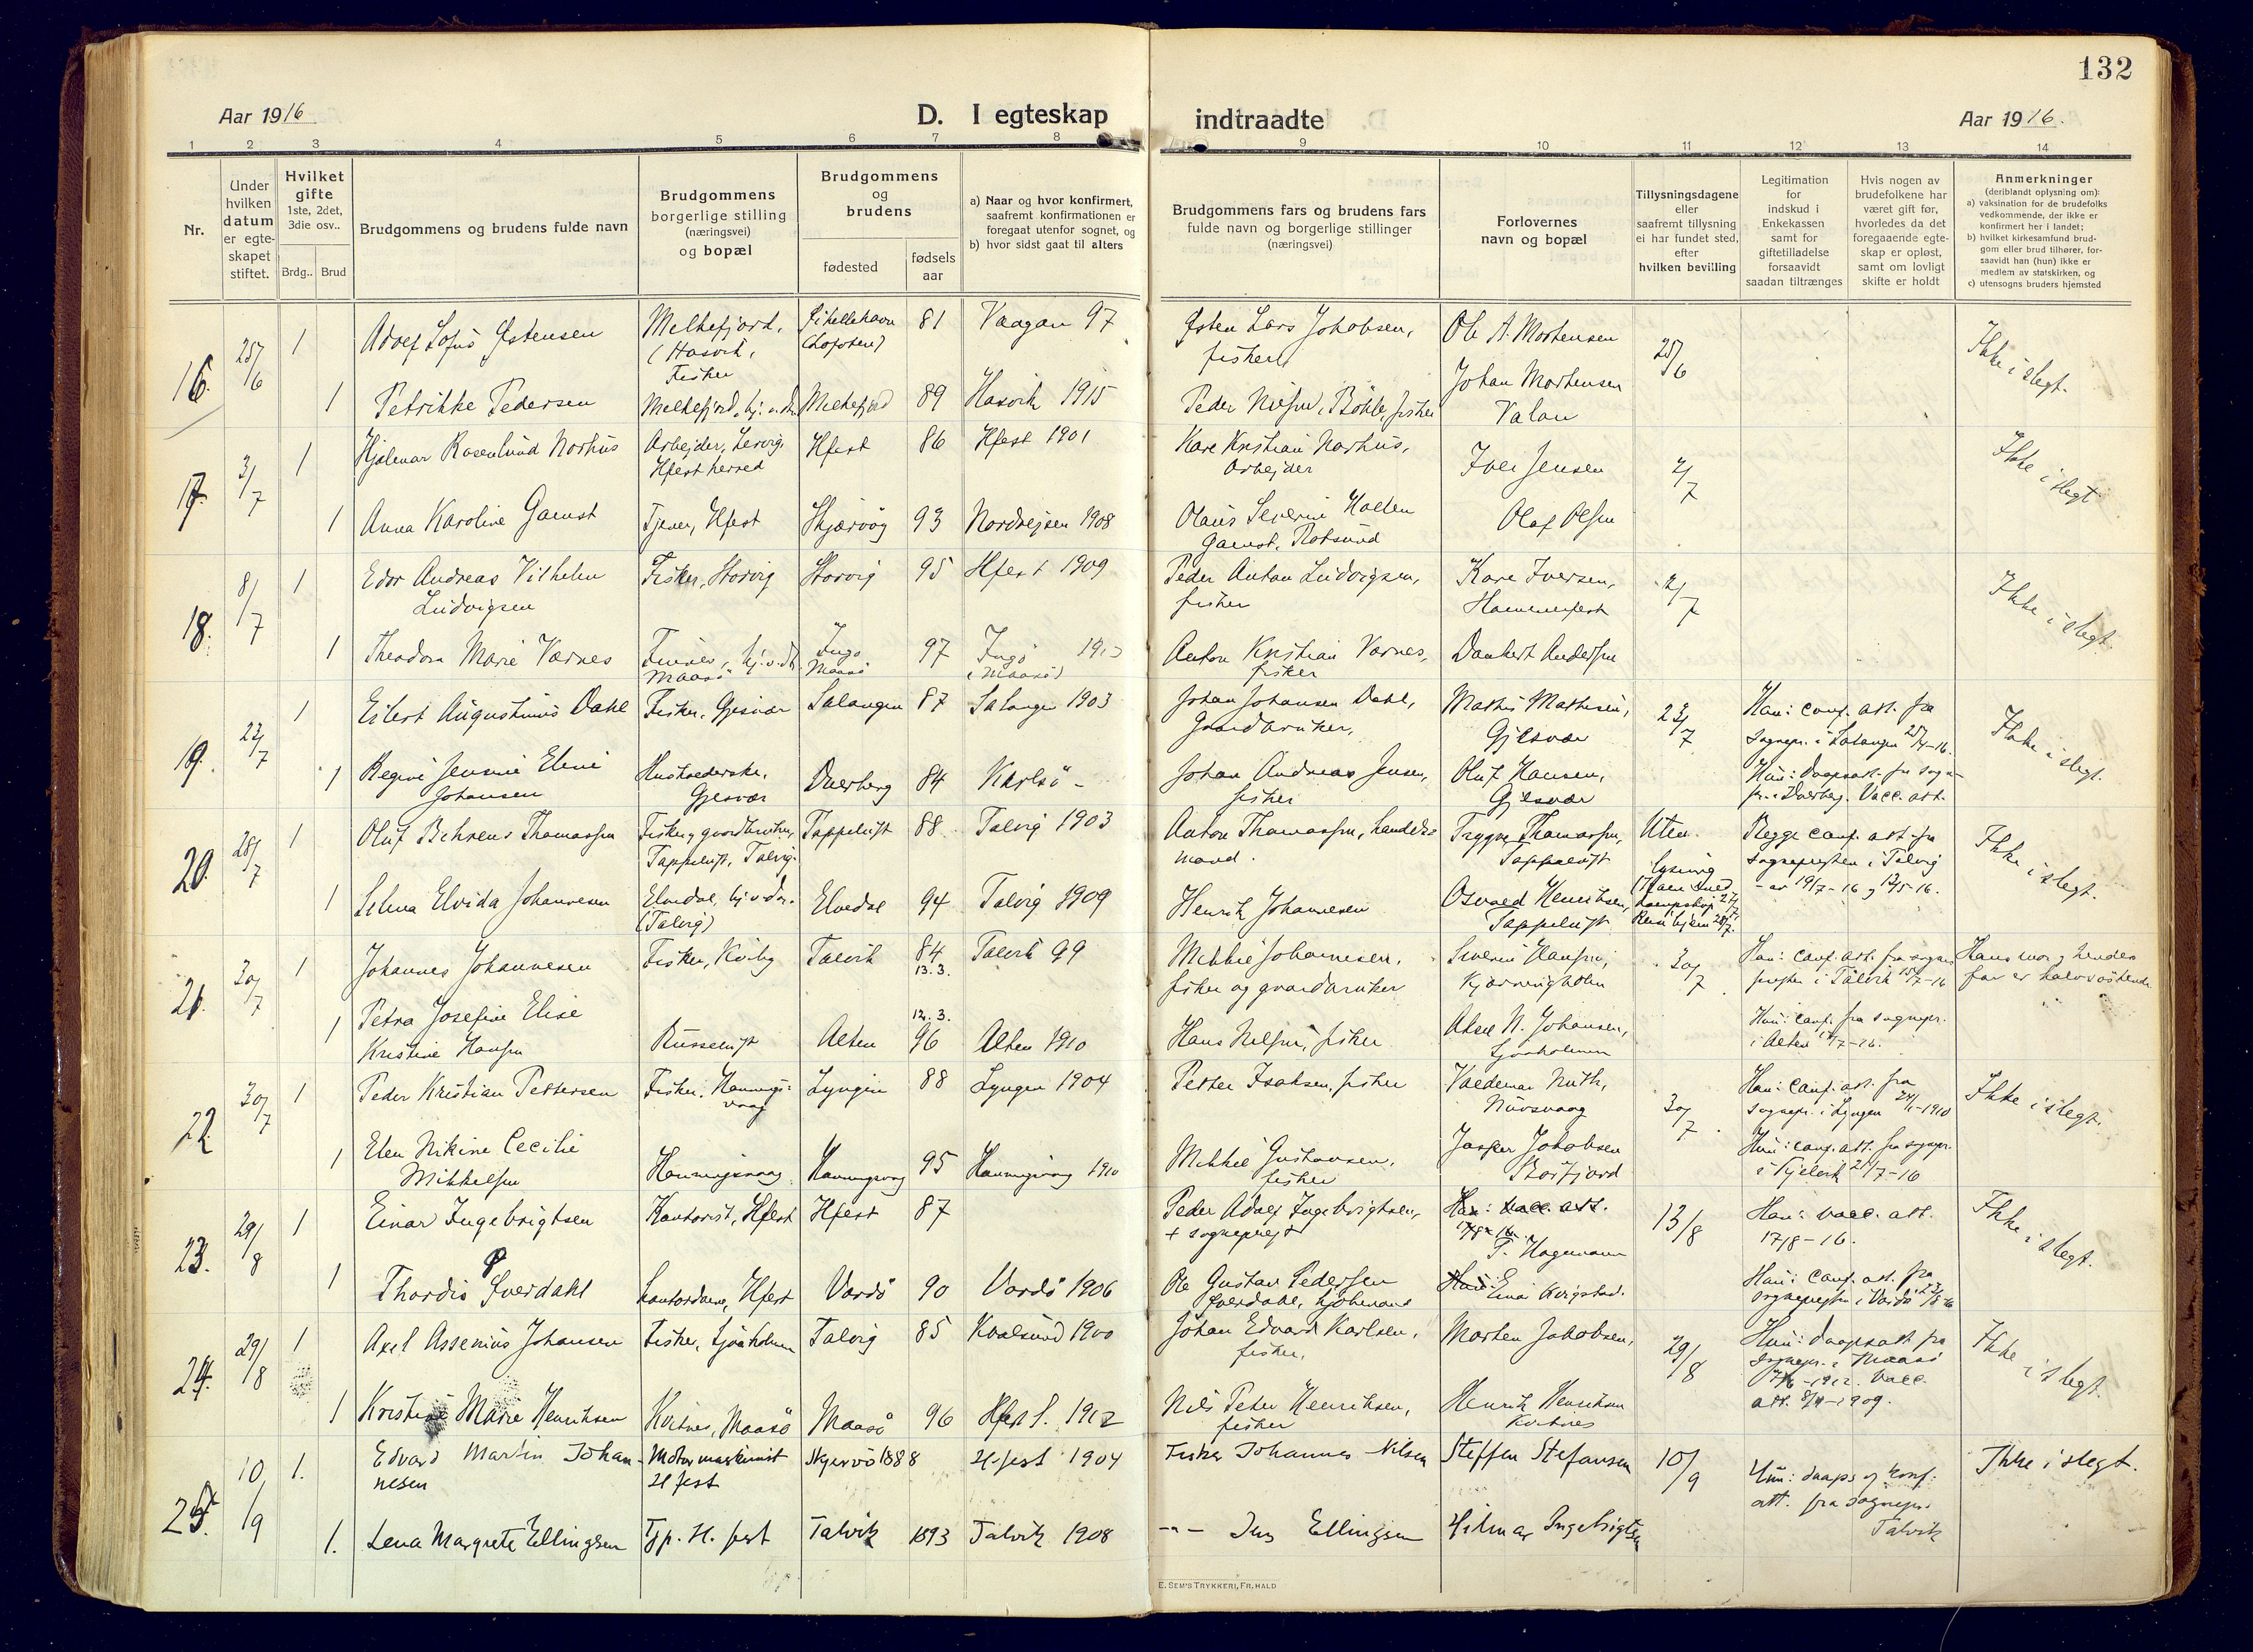 132
Aar 1916
D. I egteskap
indtraadte
Aar 1916.
1 2 3 4 5 6 7 8 9 10 11 12 13 14
Nr.
Under hvilken datum er egteskapet stiftet.
Hvilket gifte
1ste, 2det, 3die osv..
Brdg.. Brud
Brudgommens og brudens fulde navn
Brudgommens borgerlige stilling (næringsvei) og bopæl
Brudgommens og brudens
fødested
fødsels aar
a) Naar og hvor konfirmert, saafremt konfirmationen er foregaat utenfor sognet, og
b) hvor sidst gaat til alters
Brudgommens fars og brudens fars fulde navn og borgerlige stillinger (næringsvei)
Forlovernes navn og bopæl
Tillysningsdagene eller saafremt tillysning ei har fundet sted, efter hvilken bevilling
Legitimation for indskud i Enkekassen samt for giftetilladelse forsaavidt saadan tiltrænges
Hvis nogen av brudefolkene har været gift før, hvorledes da det foregaaende egteskap er opløst, samt om lovligt skifte er holdt
Anmerkninger
(deriblandt oplysning om):
a) vaksination for de brudefolks vedkommende, der ikke er konfirmert her i landet;
b) hvilket kirkesamfund brudgom eller brud tilhører, forsaavidt han (hun) ikke er medlem av statskirken, og
c) utensogns bruders hjemsted
16. 25/6 1 Adolf Lofus Østensen Melkefjord, (Hasvik, Fisker (Lofoten) 81 Vaagan 97 Østen Lars Jakobsen, fisker Ole A. Mortensen 25/6 Ikke i slegt.
1 Petrikke Pedersen Melkefjord, Melkefjord 89 Hasvik 1915 Peder Nilsen, fisker Johan Mortensen Valan
17. 3/7 1 Hjalmar Rosenlund Norhus Arbejder, Hfest herred Hfest 86 Hfest 1901 Karl Kristian Norhus, Arbejder Iver Jensen 2/7 Ikke i slegt
1 Anna Karoline Gamst Tjener, Hfest Skjærvög 93 Nordrejsen 1908 Olaus Severin Gamst, Rotsund Olaf Olsen
18. 8/7 1 Edor Andreas Vilhelm Ludvigsen Fisker, Storvig Storvig 95 Hfest 1909 Peder Anton Ludvigsen, fisker Kare Iversen, Hammerfest 2/7 Ikke i slegt
1 Theodora Marie Værnes Maasö Ingö Maasö 97 Ingö (Maasö) Anton Kristian Værnes, fisker Dankert Andersen
19. 23/7 1 Eilert Augustinus Dahl Fisker, Gjesvær Salangen 87 Salangen 1903 Johan Johansen Dahl, Gaardbruker, Mathis Mathisen, Gjesvær 23/7 Han: conf. att. fra sognepr. i Salangen Ikke i slegt.
1 Regine Jensine Eline Johansen Husholderske, Gjesvær Dverberg 84 Karlsö - Johan Andreas Jensen, fisker Oluf Hansen, Gjesvær Hun: Daapsatt. fra sognepr. i Dverberg. Vacc. att.
20. 28/7 1 Oluf Behrens Thomassen Fisker, gaardbruker, Tappeluft, Talvig. Tappeluft 88 Talvig 1903 Anton Thomassen, handelsmand. Trygve Thomassen, Tappeluft Uten lysning Begge conf. att. fra sognepresten i Talvig - av 19/7-16 og 12/5-16. Ikke i slegt.
1 Selma Elvida Johannesen Elvedal, (Talvig) Elvedal 94 Talvig 1909 Henrik Johannesen Osvald Henriksen, Tappeluft
21. 30/7 1 Johannes Johannesen Fisker, Kviby Talvik 84 13.3. Talvik 99 Mikkel Johannesen, fisker og gaardbruker Severin Hansen, 30/7 Han: conf. att. fra sognepresten i Talvik 15/7-16 Hans mor og hendes far er halvsöskende
1 Petra Josefine Elise Kristine Hansen Russeluft Alten 12.3. 96 Alten 1910 Hans Nilsen, fisker Aksel N. Johansen, Hun: conf. fra sognepr. i Alten
22. 30/7 1 Peder Kristian Pettersen Fisker. Honningsvaag Lyngen 88 Lyngen 1904 Petter Isaksen, fisker Valdemar Nuth, 30/7 Han: conf. att. fra sognepr. i Lyngen 24/1-1910 Ikke i slegt.
1 Elen Nikine Cecilie Mikkelsen Honningsvaag Honningsvaag 95 Honningsvaag 1910 Mikkel Gustavsen, fisker Jasper Jakobsen Hun: conf. att. fra sognepr. i Kjelvik 21/7-16
23. 29/8 1 Einar Ingebrigtsen Kontorist, Hfest Hfest 87 Peder Adolf Ingebrigtsen, + sogneprest Han: vacc. att. 17/8-16. T. Hagemann 13/8 Han: vacc. att. 17/8-16. Ikke i slegt.
1 Thordis Sverdahl Kontordame, Hfest Vardö 90 Vardö 1906 Ole Gustav Pedersen Sverdahl, kjöbmand Hun: Einar Kvigstad. Hun: Conf. att. fra sognepresten i Vardö
24. 29/8 1 Axel Assenius Johansen Fisker, Sjåholmen Talvig 85 Kvalsund 1900 Johan Edvard Karlsen, fisker, Morten Jakobsen, 29/8 Hun: Daapsatt. fra sognepr. i Maasö -1912. Vacc. att. -1909. Ikke i slegt.
1 Kristine Marie Henriksen Kvitnes, Maasö Maasö 96 Hfest L. 1912 Nils Peter Henriksen, fisker Henrik Henriksen Kvitnes
25. 10/9 1. Edvard Martin Johannesen Motormaskinist H.fest Skjervö 1888 H.fest 1904 Fisker Johannes Nilsen Steffen Stefansen 10/9 Hun: daaps og konf: att. fra sognepr. Talvik Ikke i slegt.
1. Lena Margrete Ellingsen Tjp. H. fest Talvik 1893 Talvik 1908 -"- Jens Ellingsen Hilmar Ingebrigtsen
E. SEM'S TRYKKERI, FR.HALD